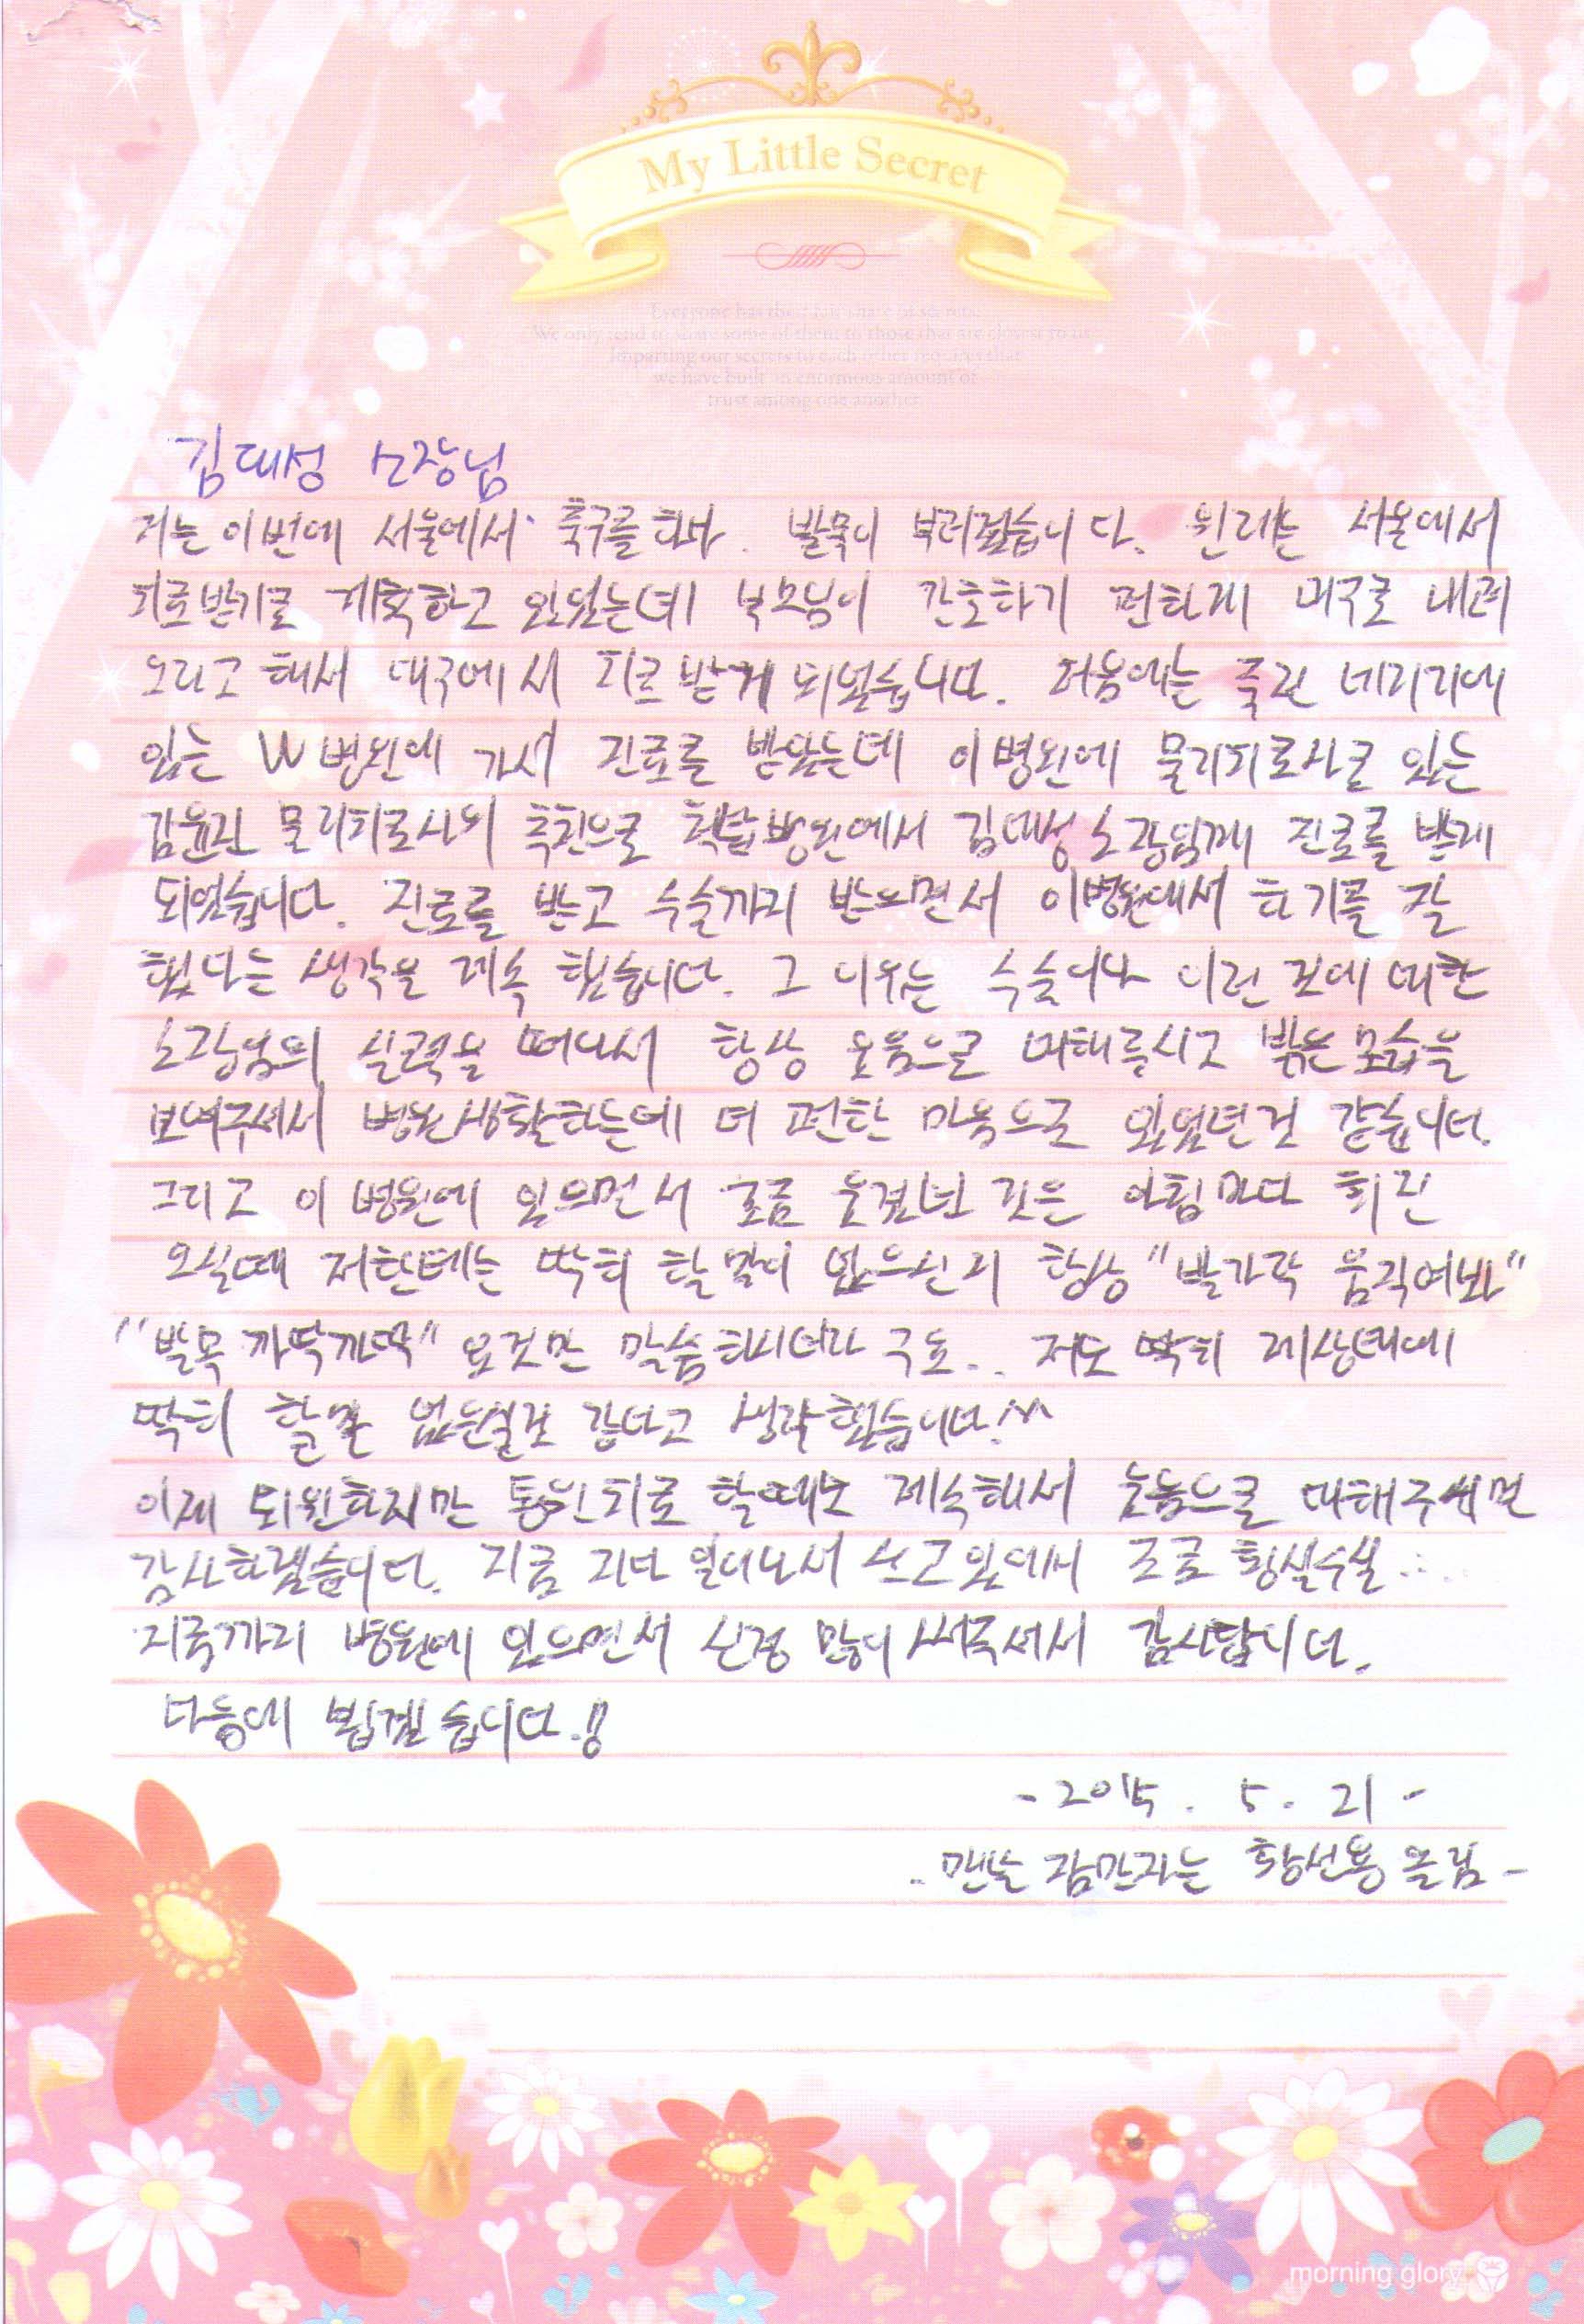 My Little Secret
Everyone has their fair share of secrets.
We only tend to share some of them to those that are closest to us.
Imparting our secrets to each other requires that
we have built an enormous amount of
trust among one another.
김대성 소장님
저는 이번에 서울에서 축구를 하다. 발목이 부러졌습니다. 원래는 서울에서
치료받기로 계획하고 있었는데 부모님이 간호하기 편하게 대구로 내려
오라고 해서 대구에서 치료 받게 되었습니다. 처음에는 죽전 네거리에
있는 W병원에 가서 진료를 받았는데 이병원에 물리치료사로 있는
김윤진 물리치료사의 추천으로 병원에서 김대성 소장님께 진료를 받게
되었습니다. 진료를 받고 수술까지 받으면서 이병원에서 하기를 잘
했다는 생각을 계속 했습니다. 그 이유는 수술이나 이런 것에 대한
소장님의 실력을 떠나서 항상 웃음으로 대해주시고 밝은 모습을
보여주셔서 병원생활하는데 더 편한 마음으로 있었던것 같습니다.
그리고 이 병원에 있으면서 조금 웃겼던 것은 아침마다 회진
오실때 저한테는 딱히 할 말이 없으신지 항상 "발가락 움직여봐"
"발목 까딱까딱" 요것만 말씀하시더라구요.. 저도 딱히 제상태에
딱히 할말 없으실것 같다고 생각했습니다.!^^
이제 퇴원하지만 통원치료 할때도 계속해서 웃음으로 대해주시면
감사하겠습니다. 지금 자다 일어나서 쓰고있어서 조금 횡설수설.....
지금까지 병원에 있으면서 신경 많이 써주셔서 감사합니다.
다음에 뵙겠습니다.!!
-2015. 5. 21-
-맨날 잠만자는 황선용 올림-
morning glory